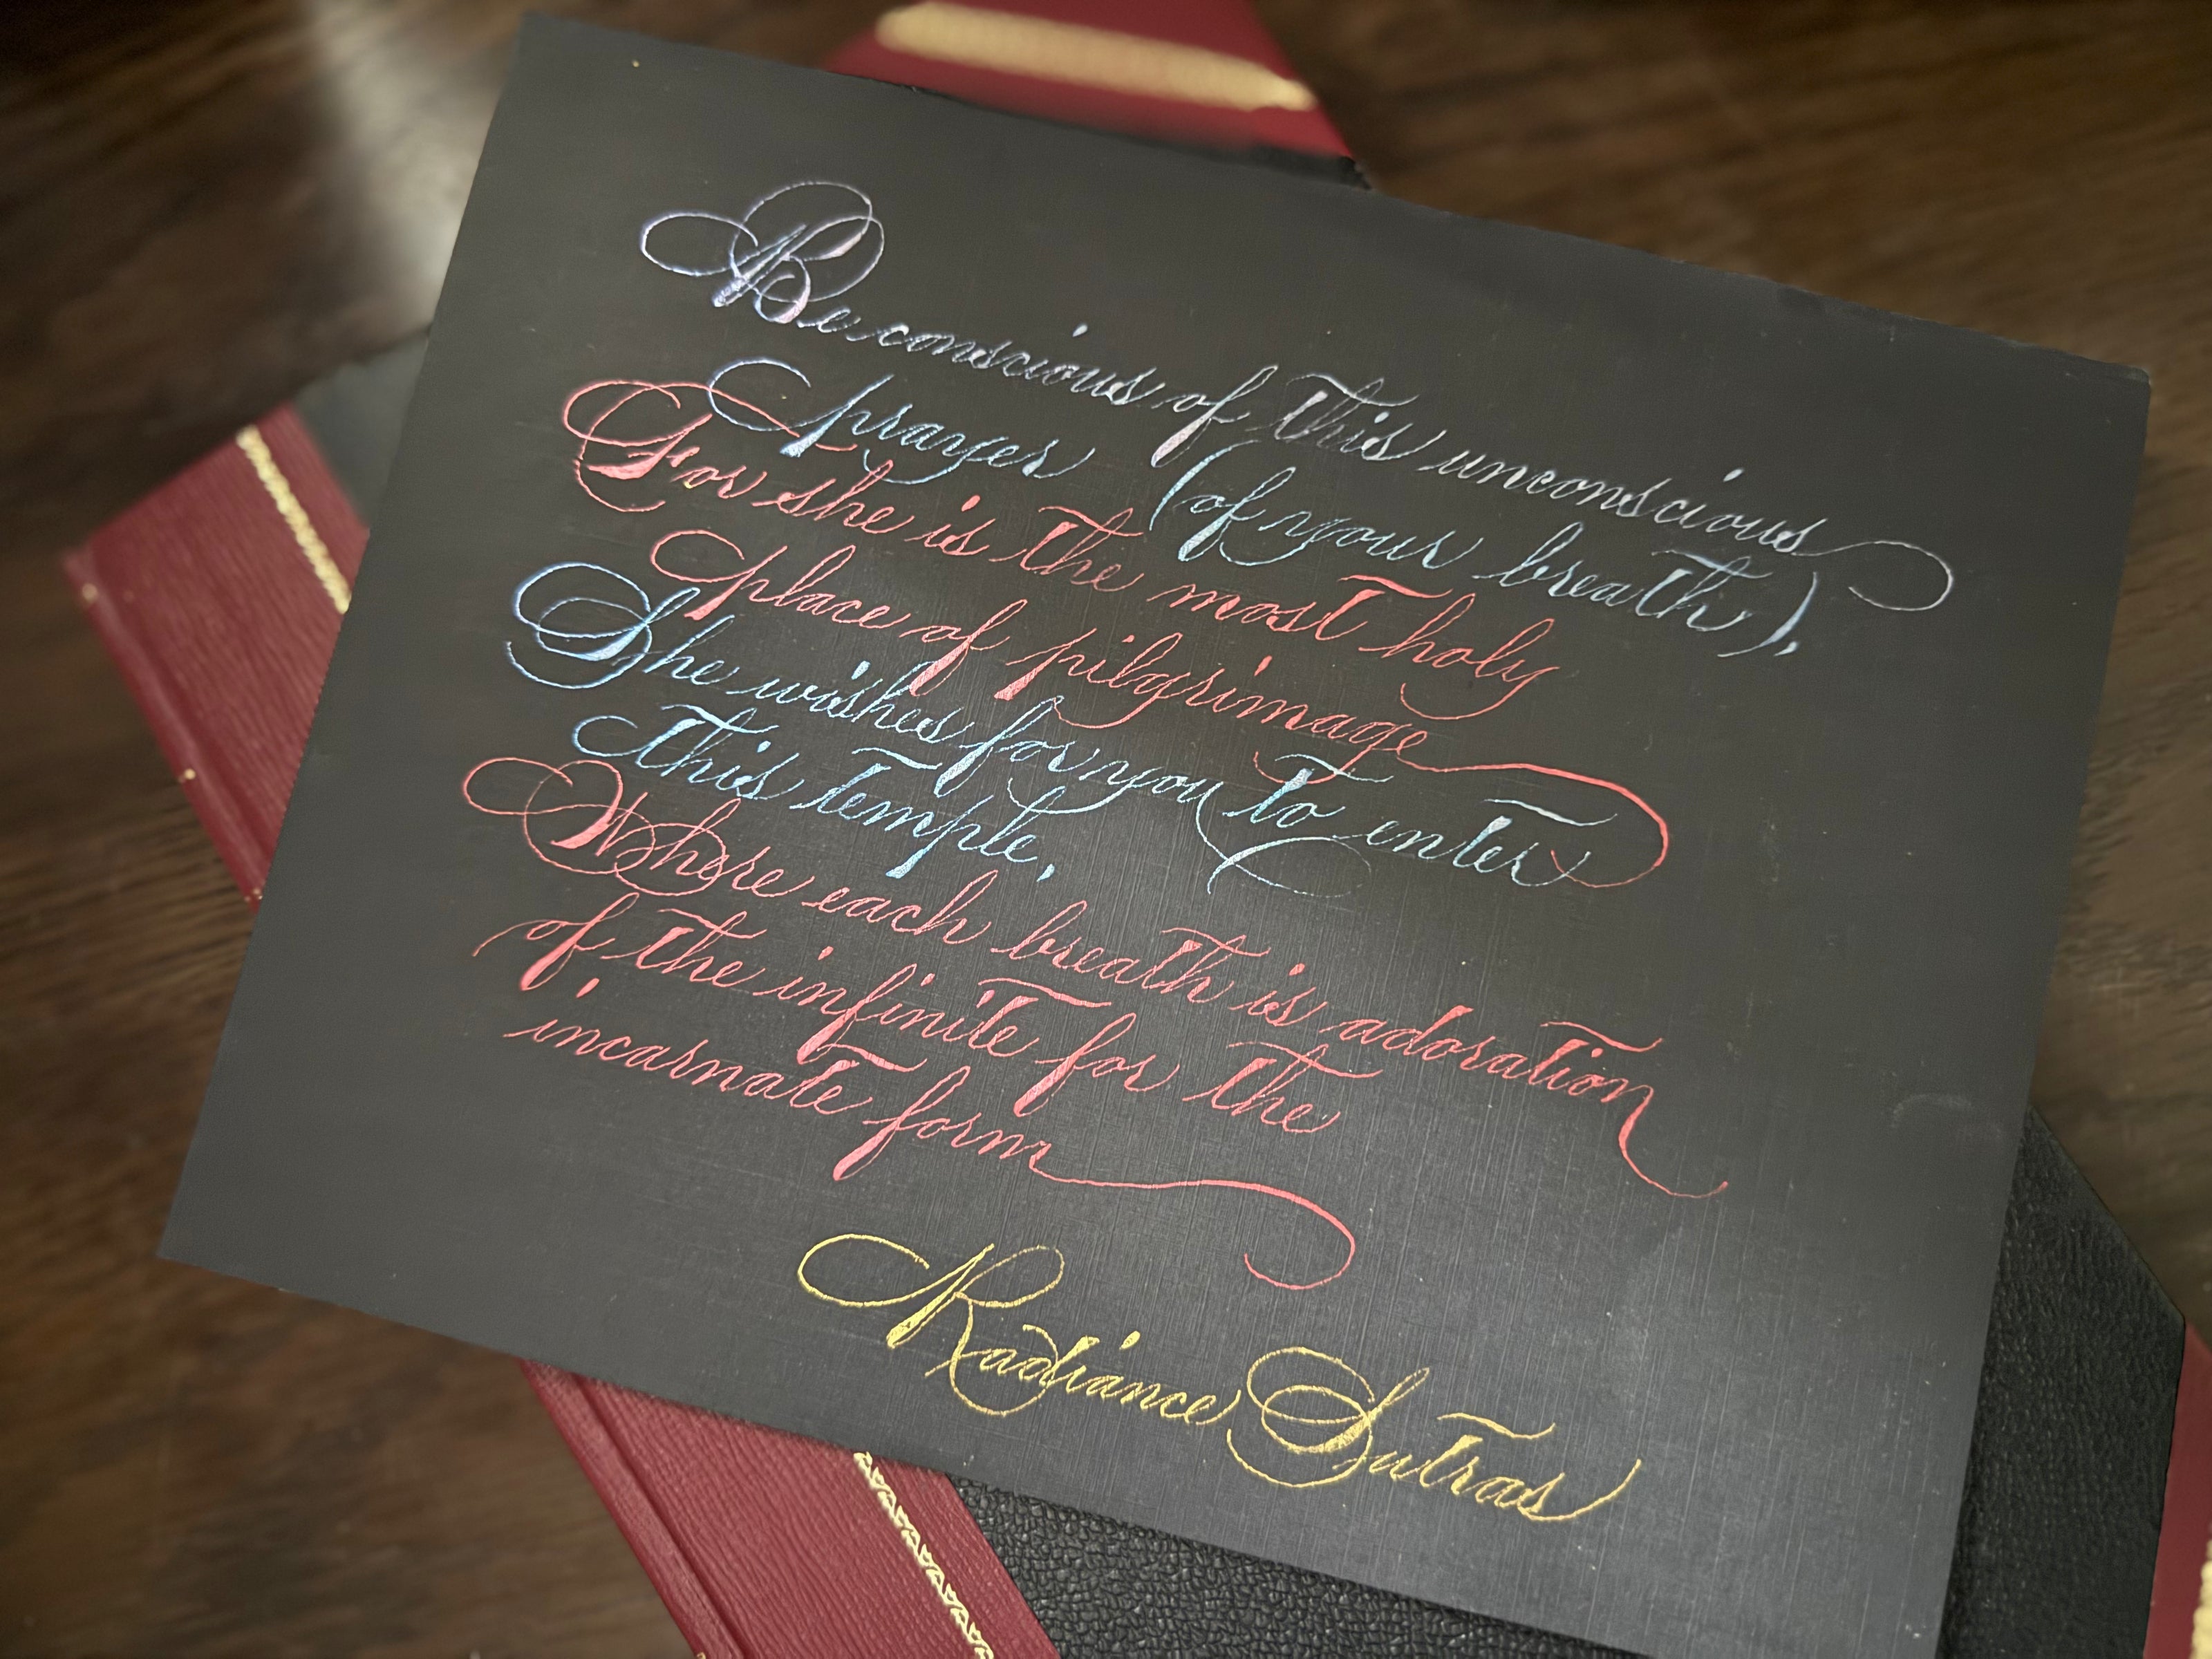 Be conscious of this unconscious
prayer (of your breath),
For she is the most holy
place of pilgrimage
She wishes for you to enter
this temple,
Where each breath is adoration
of the infinite for the
incarnate form
Radiance Sutras